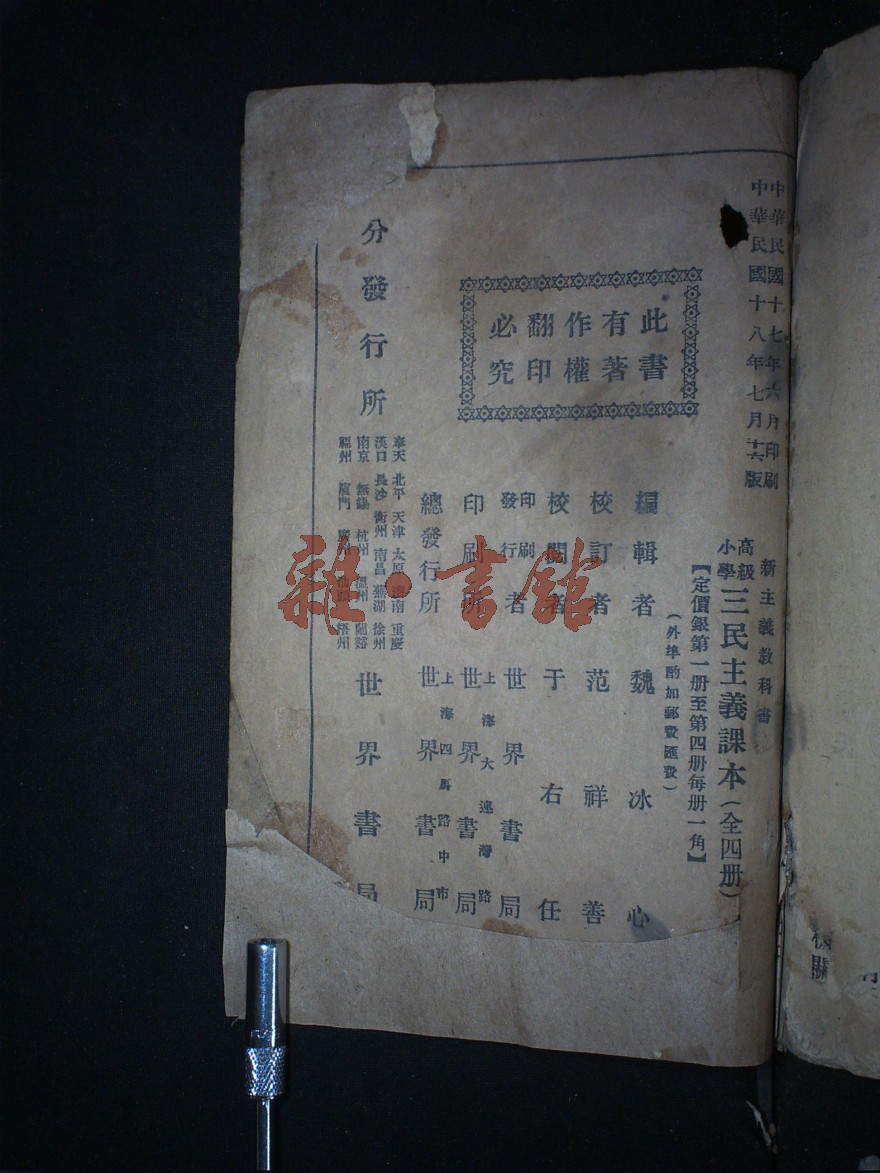 中華民國十七年六月印刷
中華民國十八年七月十六版
新主義教科書
高級
小學
三民主義課本(全四册)
【定價銀第一册至第四册每册一角】
(外埠酌加郵費匯費)
此書
有著
作權
翻印
必究
編輯者 魏冰心
校訂者 范祥善
校閱者 于右任
印刷
發行
者 世界書局
上海大連灣路
印刷所 世界書局
上海四馬路中市
總發行所 世界書局
分發行所
奉天 北平 天津 太原 濟南 重慶
漢口 長沙 衡州 南昌 蕪湖 徐州
南京 無錫 杭州 溫州 蘭谿
福州 廈門 廣州 汕頭 梧州
世界書局
雜·書館
機關